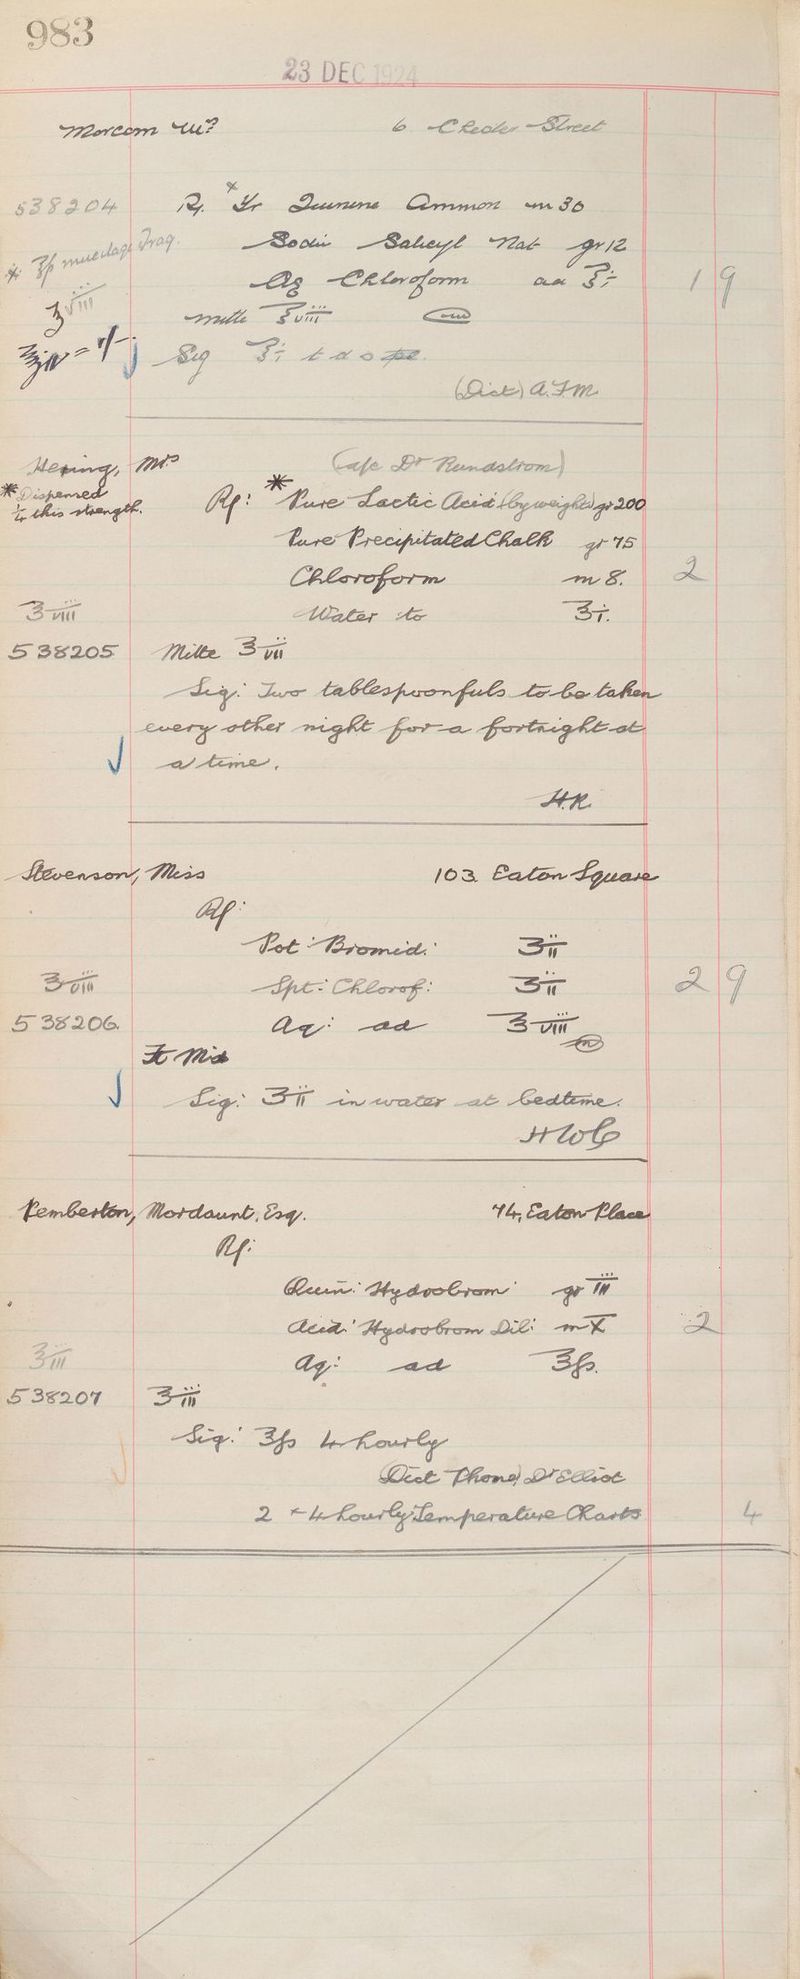 983
23 DEC 1924
Morcom Mr 6 Chester Street
538204 Rx * Tr Quinine Ammon m 30
* ℥ss mucilage Trag. Sodii Salicyl Nat gr 12
Aq Chloroform ad ℥i 1 9
℥viii mitte ℥viii
℥iv = 1/- Sig ℥i t d s
(Dict) A.F.M.
Hering, Mrs (a/c Dr Rundstrom)
* Dispensed ½ this strength. Rx: * Pure Lactic Acid (by weight) gr 200
Pure Precipitated Chalk gr 75
Chloroform m 8. 2
℥viii Water to ℥i.
538205 Mitte ℥vii
Sig: Two tablespoonfuls to be taken
every other night for a fortnight at
a time.
H.R.
Stevenson, Miss 103 Eaton Square
Rx:
Pot: Bromid: ʒii
℥viii Spt: Chlorof: ʒii 2 9
538206. Aq: ad ℥viii
Ft Mist
Sig: ʒii in water at bedtime.
Pemberton, Mordaunt, Esq. 74, Eaton Place
Rx:
Quin: Hydrobrom gr iii
Acid: Hydrobrom Dil: m x 2
℥iii Aq: ad ℥ss.
538207 ℥iii
Sig: ℥ss 4 hourly
(Dict Phone) Dr Elliot
2 - 4 hourly Temperature Charts 4